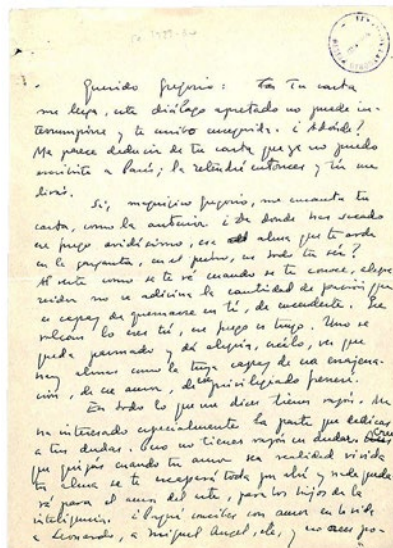 Querido Gregorio: Tu carta
me llega, este diálogo apretado no puede in-
terrumpirse y te escribo enseguida. ¿Adónde?
Me parece deducir de tu carta que ya no puedo
escribirte a París; la retendré entonces y tú me
dirás.
Sí, magnífico Gregorio, me encanta tu
carta, como la anterior. ¿De donde has sacado
ese fuego avidísimo, esa alma que te arde
en la garganta, en el pecho, en todo tu ser?
Al verte como se te vé cuando se te conoce, alegre
reidor no se adivina la cantidad de pasión que
es capaz de quemarse en tí, de encenderte.
volcan lo eres tú, ese fuego es tuyo. Uno se
queda pasmado y dá alegría, créelo, ver que
hay almas como la tuya capaz de esa enajena-
ción, de ese amor, de ese privilegiado frenesí.
En todo lo que me dices tienes razón. Me
ha interesado especialmente la parte que dedicas
a tus dudas. no tienes razón en dudar. Crees
que quizás cuando tu amor sea realidad vivida
tu alma se te escapará toda por ahí y nada queda-
rá para el amor del arte, para los hijos de la
inteligencia. ¿Porqué concibes con amor en la vida
a Leonardo, a Miguel Angel, etc, y no